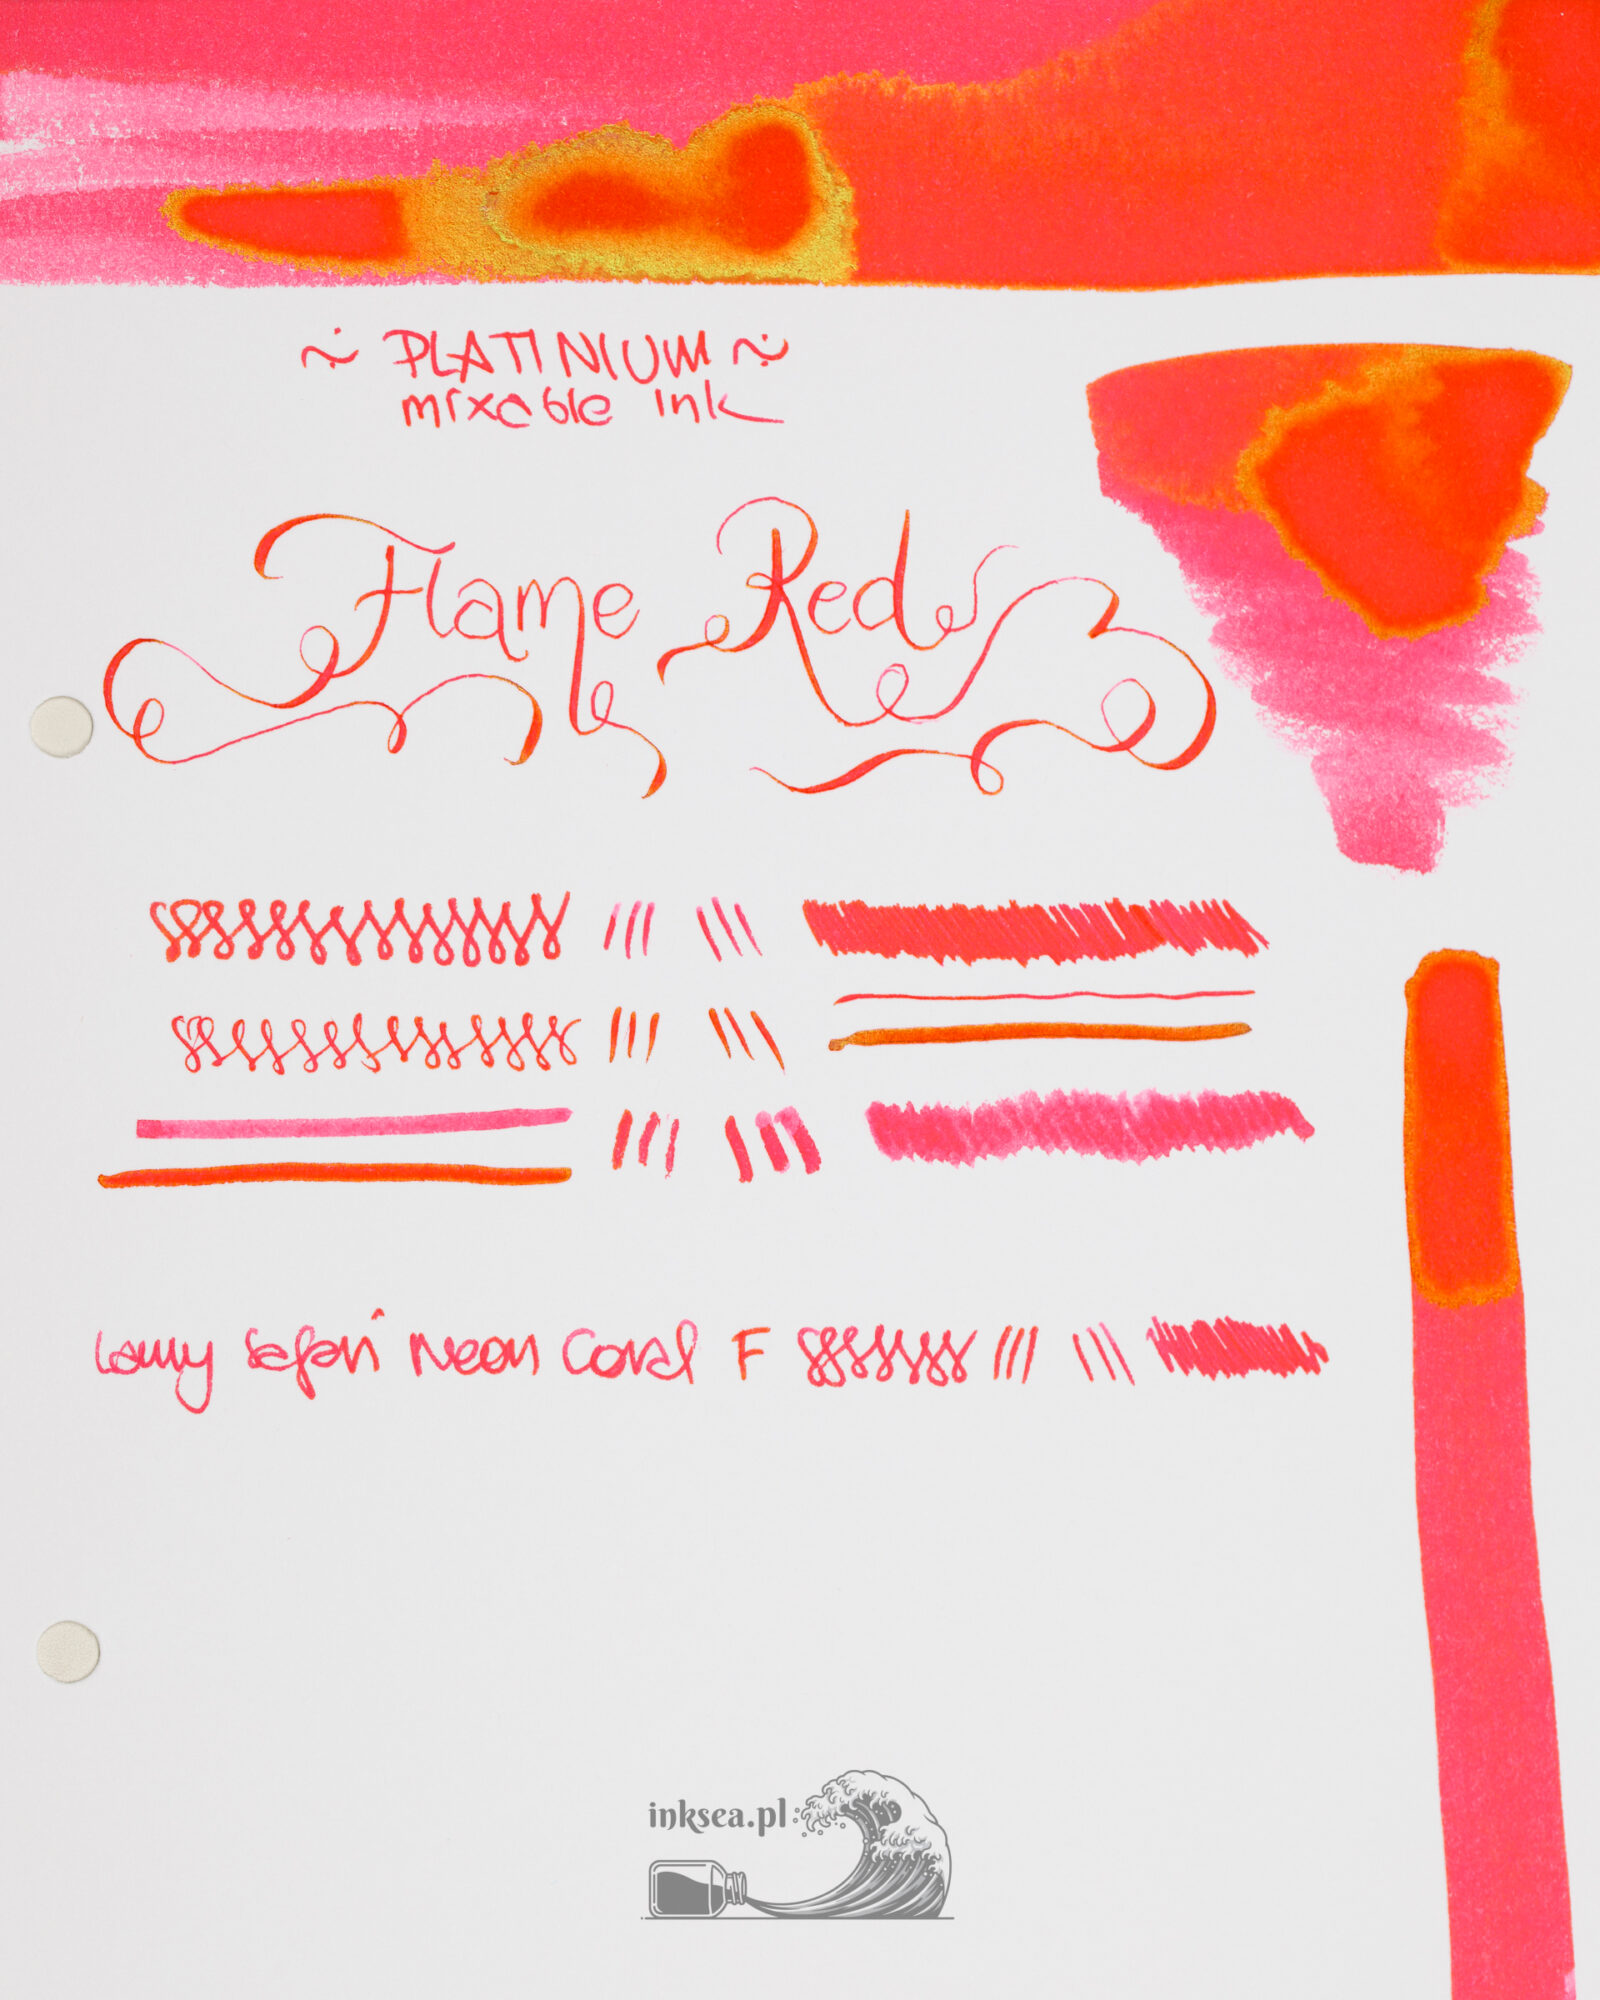 ~ PLATINIUM ~
mixable ink
Flame Red
Lamy Safari Neon Coral F
inksea.pl